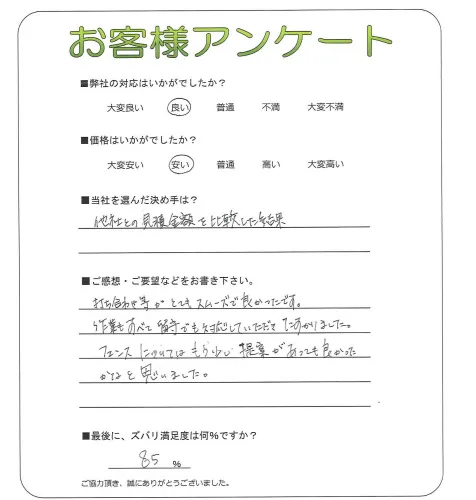 お客様アンケート
■弊社の対応はいかがでしたか？
大変良い 良い 普通 不満 大変不満
■価格はいかがでしたか？
大変安い 安い 普通 高い 大変高い
■当社を選んだ決め手は？
他社との見積金額を比較した結果
■ご感想・ご要望などをお書き下さい。
打ち合わせ等がとてもスムーズで良かったです。
作業もすべて留守でも対応していただて たすかりました。
フェンスについてはもう少し提案があっても良かった
かなと思いました。
■最後に、ズバリ満足度は何％ですか？
85 %
ご協力頂き、誠にありがとうございました。